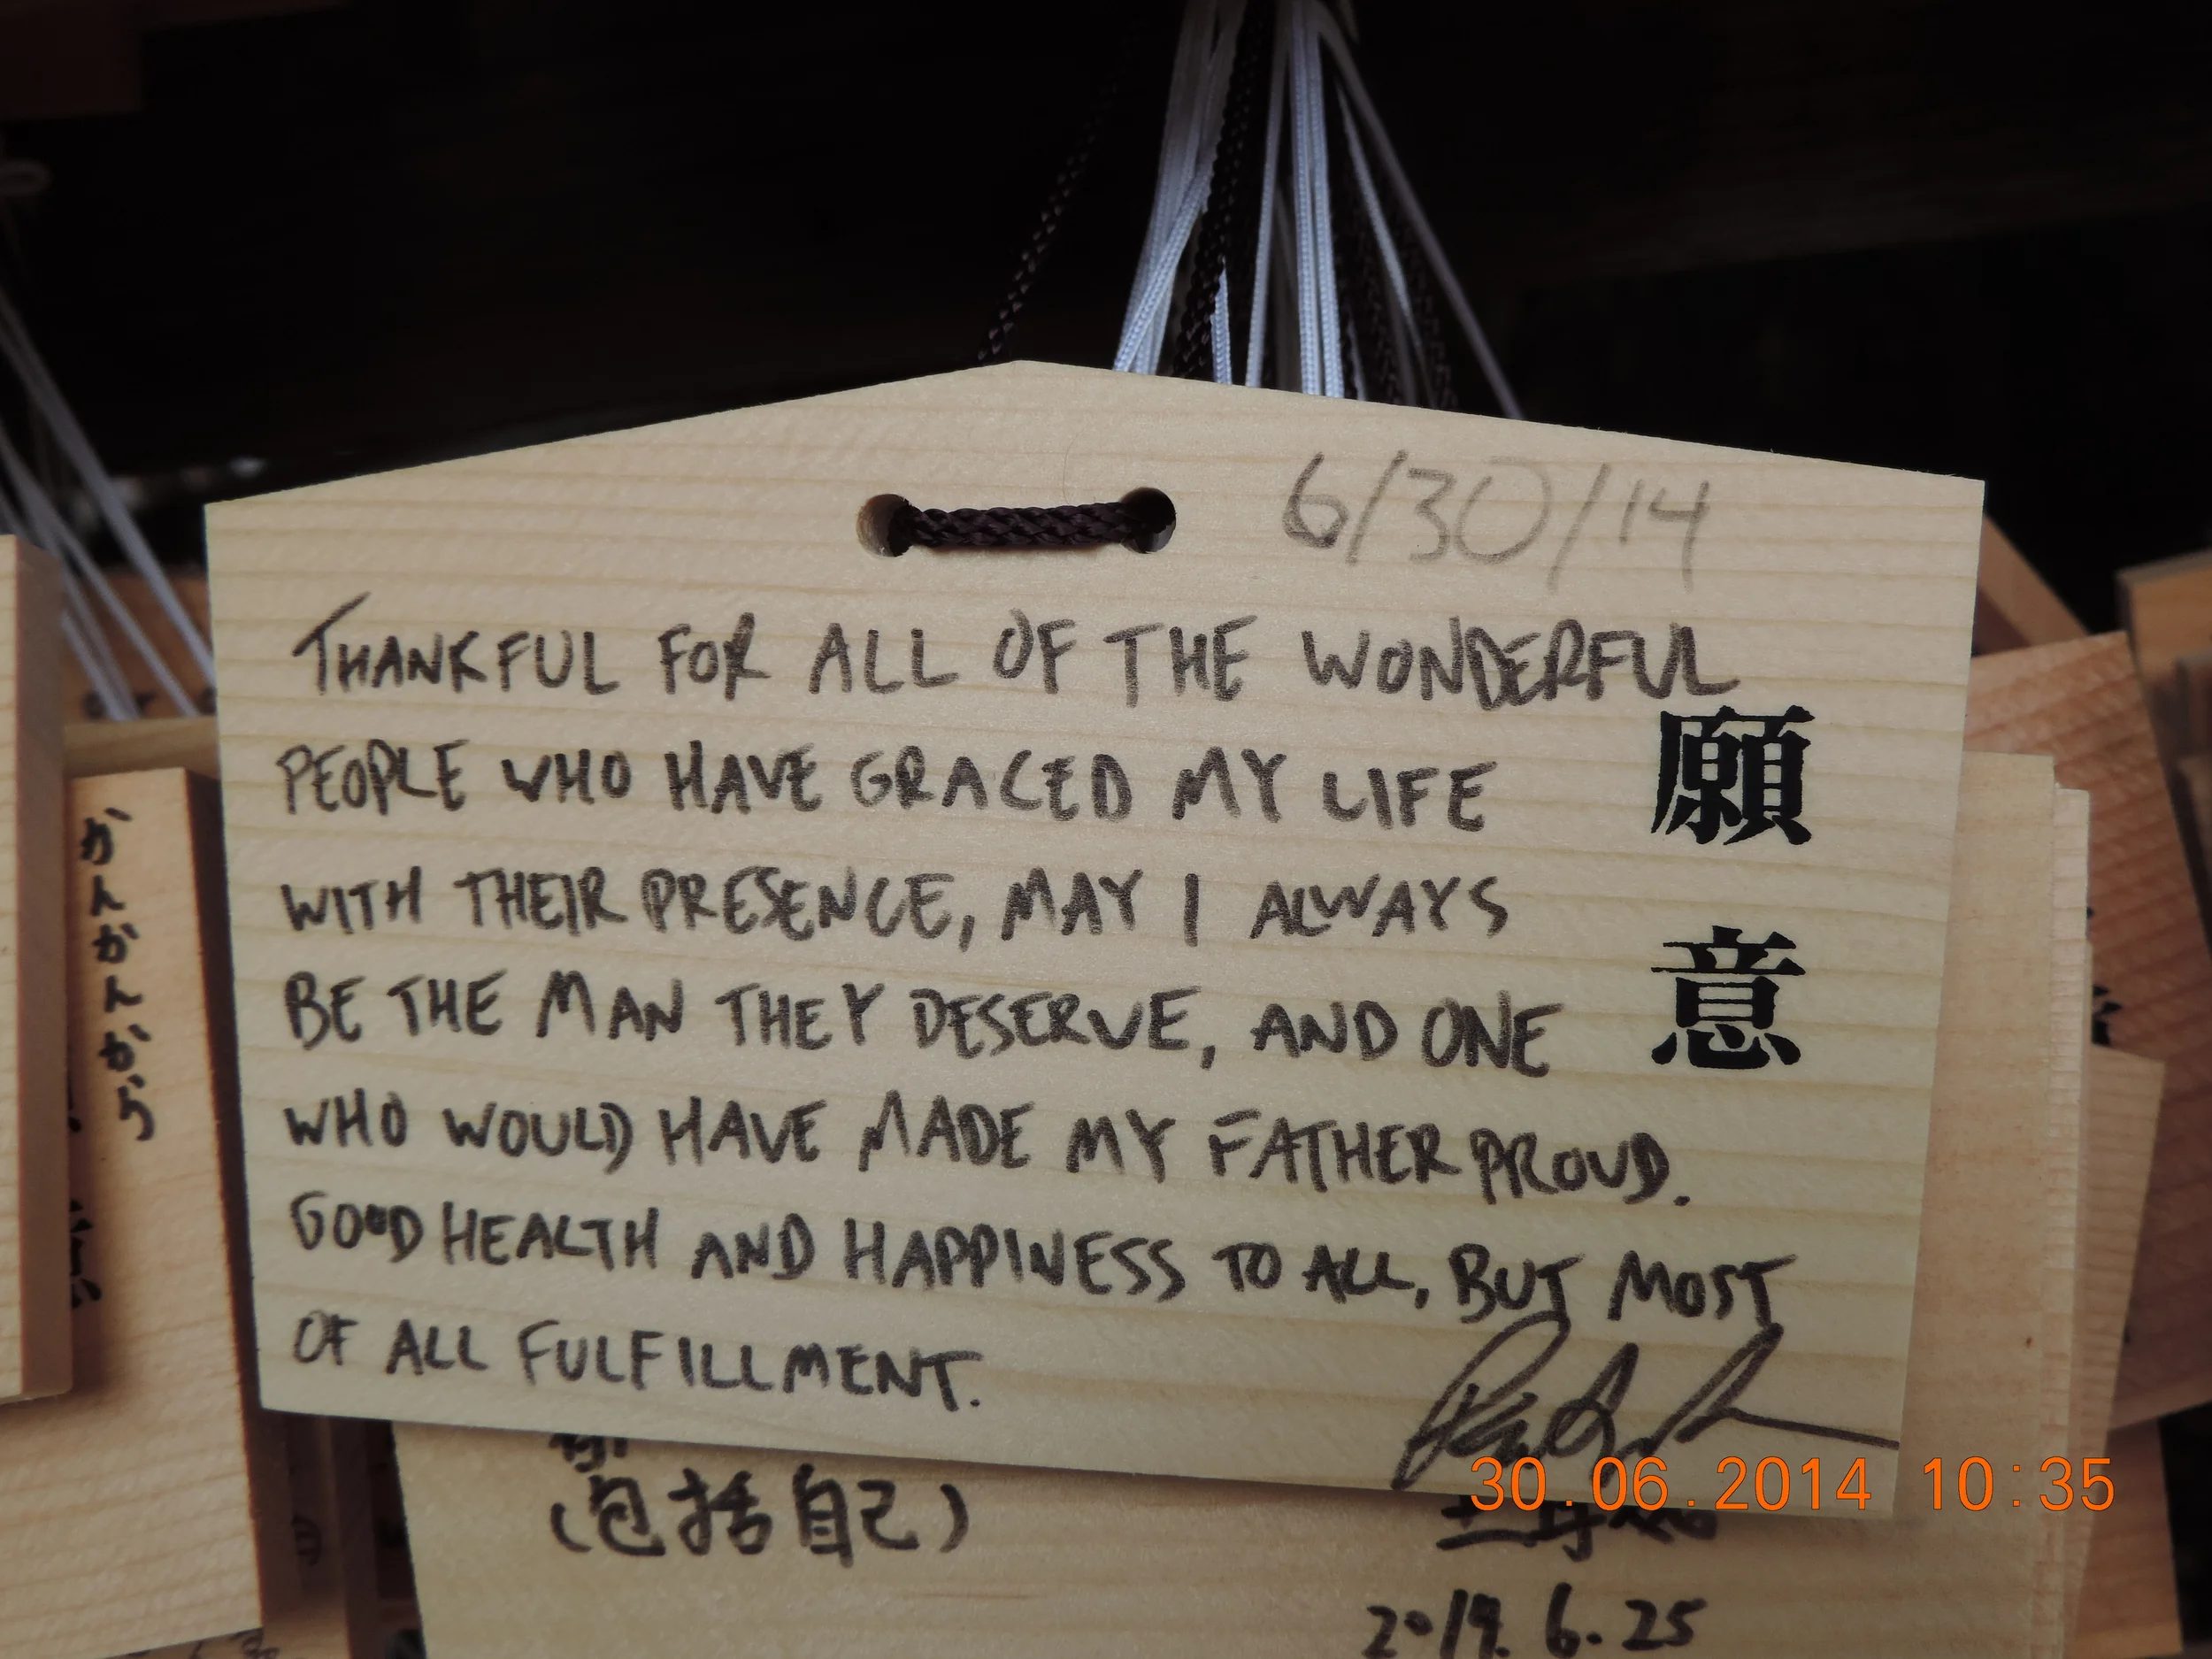 6/30/14
THANKFUL FOR ALL OF THE WONDERFUL
PEOPLE WHO HAVE GRACED MY LIFE
WITH THEIR PRESENCE, MAY I ALWAYS
BE THE MAN THEY DESERVE, AND ONE
WHO WOULD HAVE MADE MY FATHER PROUD.
GOOD HEALTH AND HAPPINESS TO ALL, BUT MOST
OF ALL FULFILLMENT.
願意
かんかんから
(包括自己)
30.06.2014 10:35
6.25